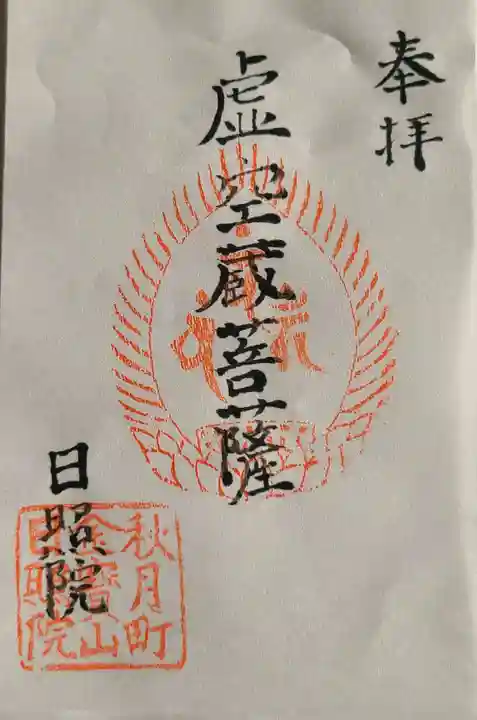 奉拝
虚空蔵菩薩
日照院
秋月町
金寶山
日照院